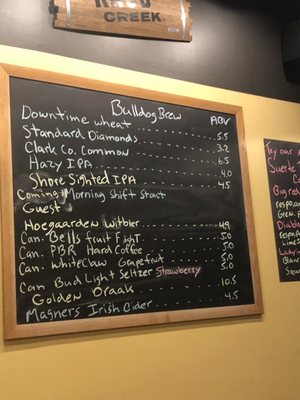 CREEK
Bulldog Brew ABV
Downtime wheat
Standard Diamonds 5.5
Clark Co. Common 3.2
Hazy IPA 6.5
Shore Sighted IPA 4.0
Coming! Morning Shift Stout 4.5
Guest
Hoegaarden Witbier 4.9
Can. Bells fruit Fight 5.0
Can. PBR Hard Coffee 5.0
Can. White Claw Grapefruit 5.0
Can Bud Light Seltzer Strawberry 5.0
Golden Draak 10.5
Magners Irish Cider 4.5
Try our
Suerte
Big red
Diablo